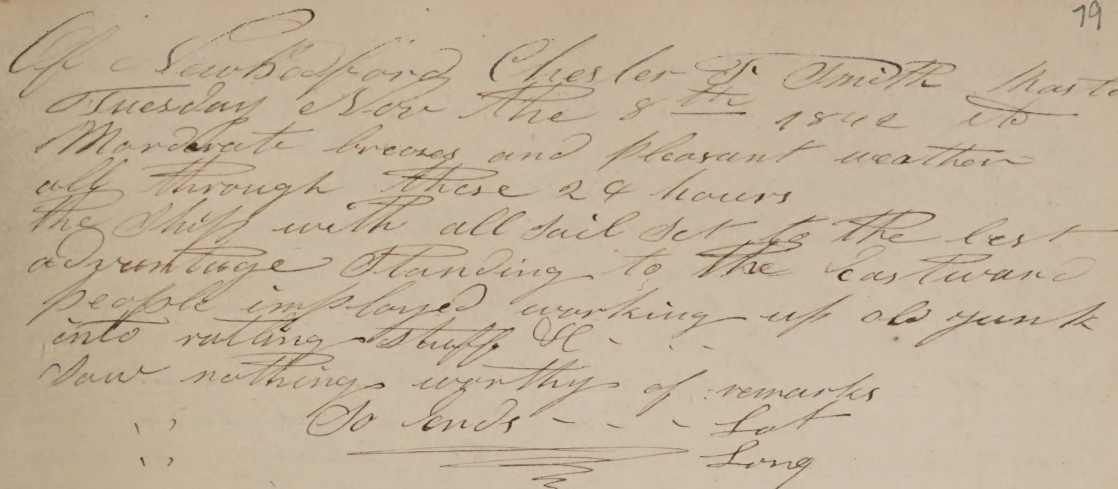 79
Of NewBedford Chester T Smith Maste
Tuesday Nov the 8th 1842
Mordorate breezes and pleasant weather
all through these 24 hours
the Ship with all sail set to the best
advantage Standing to the Eastward
people imployed working up old junk
into ratling stuff &c - - -
Saw nothing worthy of remarks
So Ends - - - Lat
Long